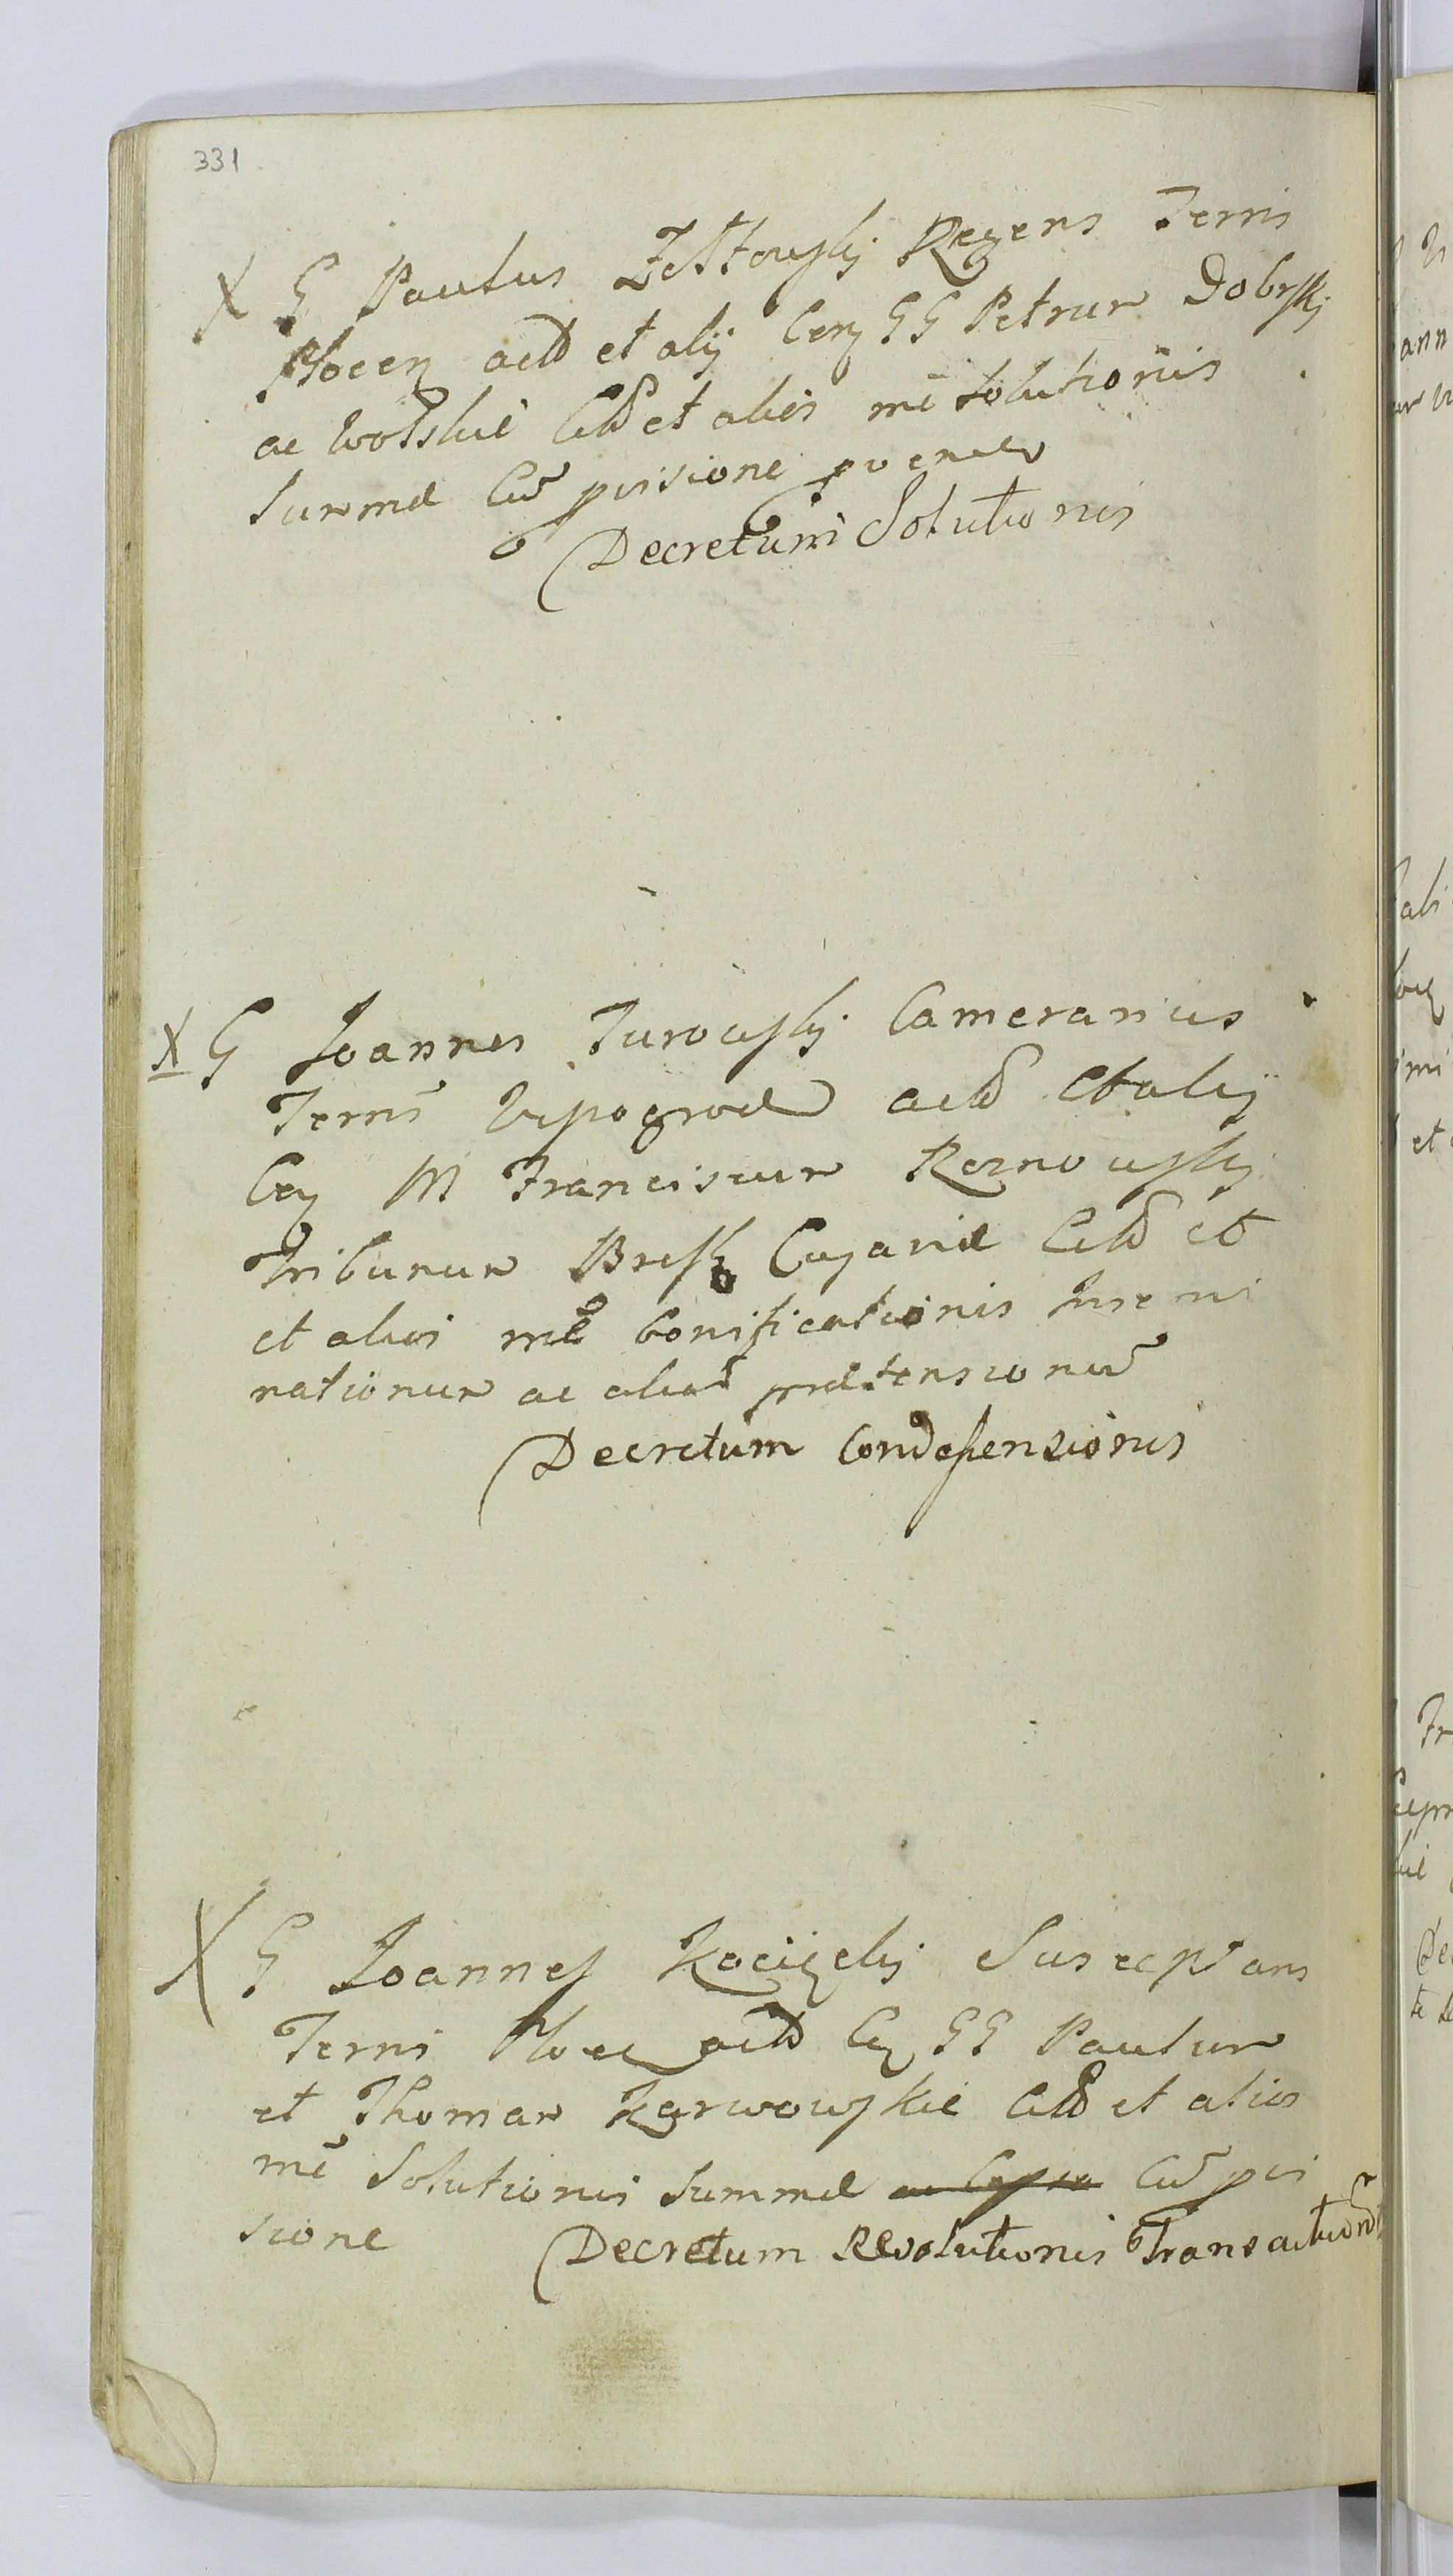 331
X G Paulus Zołtowskj Regens Terris
Plocen actð et alij Cen GG Petrum Dobrskj
ac Wolskie Citð et alios mē Solutionis
Summæ Cū pvisione
Decretum Solutionis
X G Joannes Turowskj Camerarius
Terris Vyszogrod actð et alij
Cen M Franciscum Rern owskj
Tribunum Bresc Cujaviæ Citð et
et alios mē bonificationis
nationum ac aliar prætensionū
Decretum Condescensionis
X G Joannes Kocięckj Susceptans
Terris Ploce actð Cen GG Paulum
et Thomam Karwowskie Citð et alios
mē Solutionis Summæ ac Cū pvi
sione
Decretum Revolutionis Transactionū